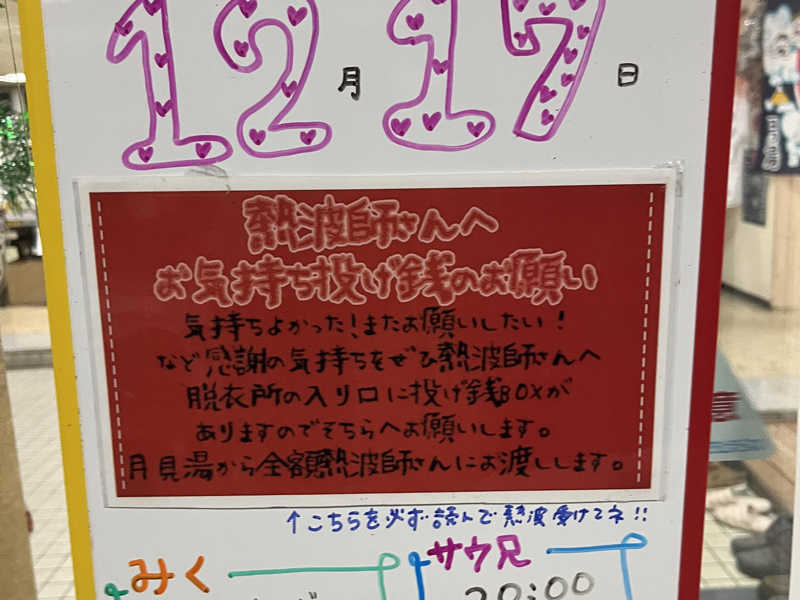 12月17日
熱波師さんへ
お気持ち投げ銭のお願い
気持ちよかった！またお願いしたい！
など感謝の気持ちをぜひ熱波師さんへ
脱衣所の入り口に投げ銭BOXが
ありますのでそちらへお願いします。
月見湯から全額熱波師さんにお渡しします。
↑こちらを必ず読んで熱波受けてネ!!
みく
サウ兄
20:00
意